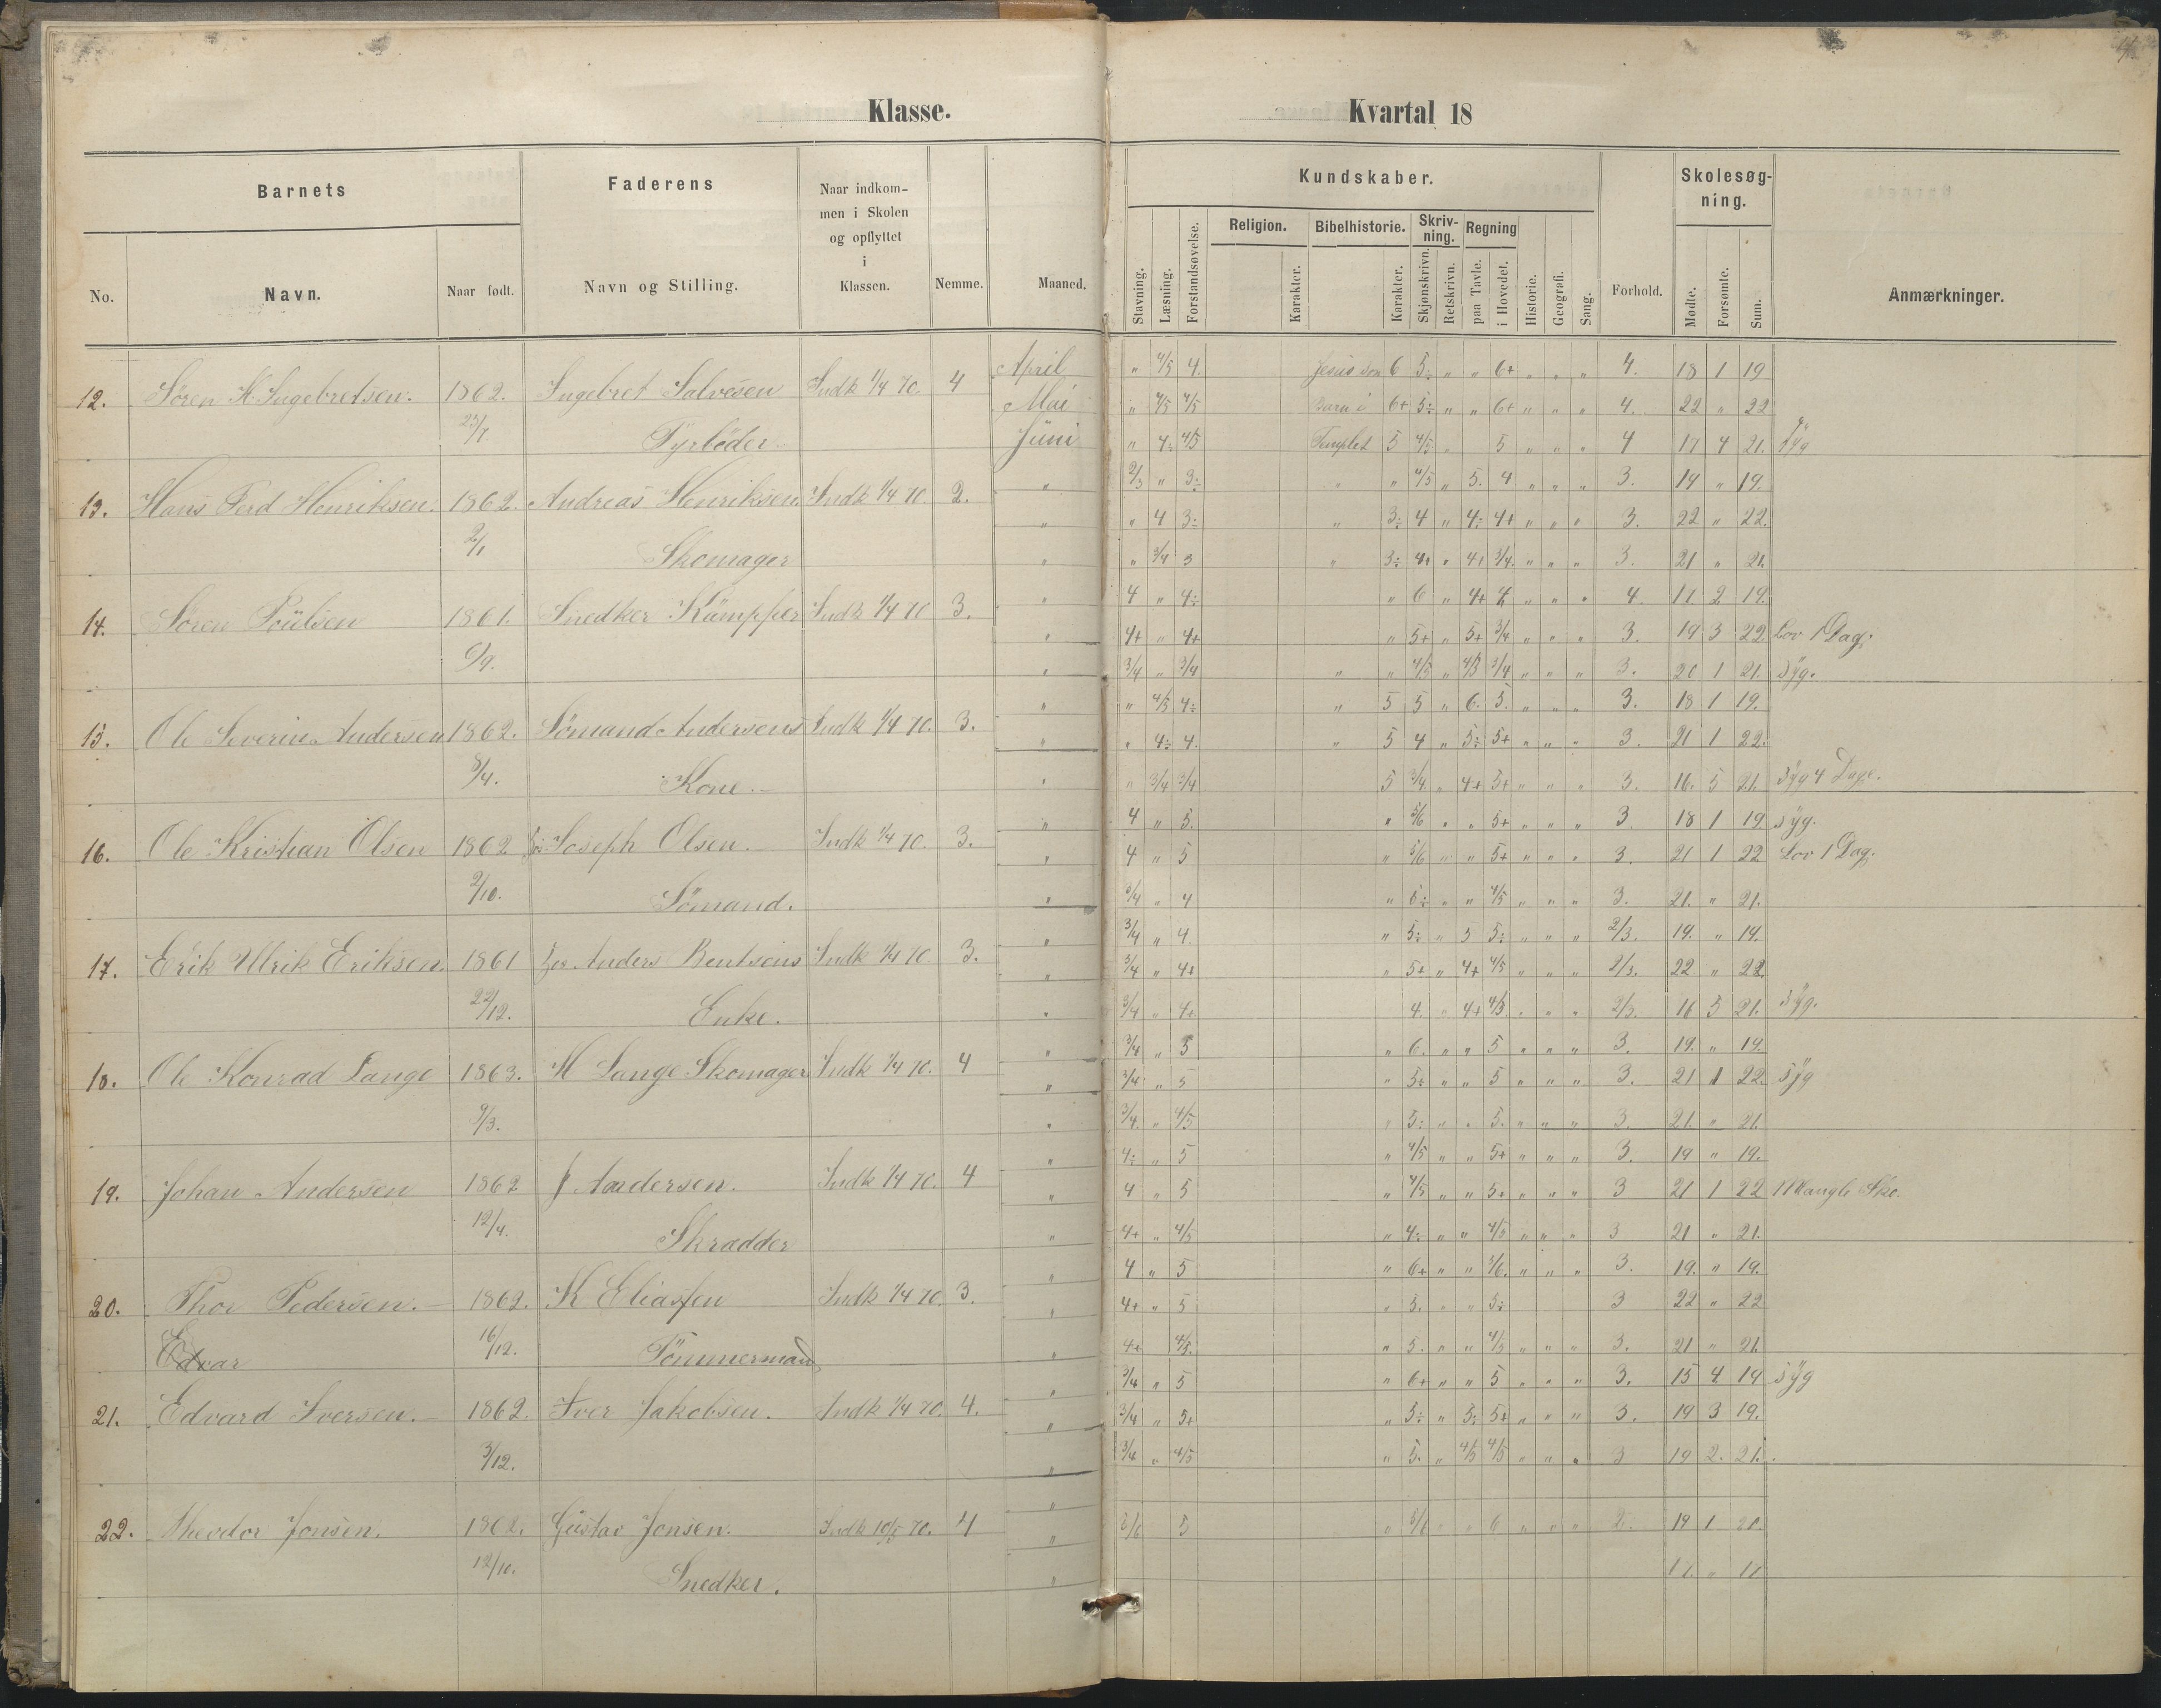 Klasse. Kvartal 18
Barnets Faderens Naar indkom-
men i Skolen
og opflyttet
i
Klassen. Nemme. Maaned. Kundskaber. Forhold. Skolesøg-
ning. Anmærkninger.
No. Navn. Naar født. Navn og Stilling. Stavning. Læsning. Forstandsøvelse. Religion. Karakter. Bibelhistorie. Karakter. Skriv-
ning. Skjønskrivn. Retskrivn. Regning paa Tavle. i Hovedet. Historie. Geografi. Sang. Mødte. Forsømte. Sum.
12. Søren H Ingebretsen. 1862. Ingebret Salvesen Indk 1/4 70. 4 April " 4/5 4. Jesus som 6 5÷ " " 6+ " " " 4. 18 1 19
Mai " 4/5 4/5 Barn i 6+ 5÷ " " 6+ " " " 4. 22 " 22
23/7. Fyrböder. Juni " 4÷ 4/5 Templet 5 4/5 " 5 " " " 4 17 4 21. Syg
" 2/3 " 3÷ " 4/5 " 5. 4 " " " 3. 19 " 19.
13. Hans Ferd Henriksen. 1862. Andreas Henriksen. Indk 1/4 70. 2. " " 4 3÷ " 3÷ 4 " 4÷ 4+ " " " 3. 22 " 22.
2/1 Skomager " " 3/4 3 " 3÷ 4+ " 4+ 3/4. " " " 3. 21 " 21.
14. Søren Poulsen 1861. Snedker Kämpper Indk 1/4 70 3. " 4 " 4÷ " 6 " 4+ 4 " " " 4. 17 2 19.
" 4+ " 4+ " 5+ " 5+ 3/4 " " " 3. 19 3 22. Lov 1 Dag.
6/9. " 3/4 " 3/4 " " 4/5 " 4/5 3/4 " " " 3. 20 1 21. Syg.
" " 4/5 4÷ " 5 5 " 6. 5. " " " 3. 18 1 19.
15. Ole Severin Andersen 1862. Sömand Andersens Indk 1/4 70. 3. " " 4÷ 4. " 5 4 " 5÷ 5+ " " " 3. 21 1 22.
8/4. Kone. " " 3/4 3/4 5 3/4 " 4+ 5+ " " " 3. 16. 5 21. Syg 4 Dage.
" 4 " 5. " 5/6 " " 5+ " " " 3. 18 1 19 Syg.
16. Ole Kristian Olsen 1862 Joseph Olsen. Indk 1/4 70. 3. " 4 " 5 " 5/6 " " 5+ " " " 3. 21 1 22 Lov 1 Dag.
2/10. Sömand. " 3/4 " 4 " 6÷ " " 4/5 " " " 3. 21. " 21.
" 3/4 " 4. " 5÷ " 5 5÷ " " " 2/3. 19. " 19.
17. Erik Ulrik Eriksen. 1861 Anders Bentsens Indk 1/4 70 3. " 3/4 " 4+ " 5+ " 4+ 4/5 " " " 2/3. 22 " 22.
22/12. Enke. " 3/4 " 4+ 4. " 4+ 4/3 " " " 2/3. 16 5 21. Syg.
" 3/4 " 5 " 6. " " 5 " " " 3. 19. " 19.
18. Ole Konrad Lange 1863. H Lange Skomager Indk 1/4 70. 4 " 3/4 " 5 " 5÷ " " 5 " " " 3. 21 1 22. Syg
9/3. " 3/4 " 4/5 " 5÷ " " 5. " " " 3. 21. " 21.
" 4÷ " 5 " 4/5 " " 5+ " " " 3. 19 " 19.
19. Johan Andersen 1862 J Andersen. Indk 1/4 70. 4 " 4 " 5 " 4/5 " " 5+ " " " 3 21 1 22 Mangle Sko.
12/4. Skradder " 4+ " 4/5 " 4÷ " " 4/5 " " " 3 21 " 21.
" 4 " 5 " 6+ " " 5/6. " " " 3. 19. " 19.
20. Thor Pedersen. 1862. K Eliassen Indk 1/4 70. 3. " 4+ " 5 " 5. " " 5÷ 3 22 " 22
Edvar 16/12. Tömmermand " 4+ 4/5. " 5. " " 4/5 " " " 3. 21 " 21.
" 3/4 " 5 " 6+ " " 5 " " " 3. 15 4 19 Syg
21. Edvard Iversen. 1862. Iver Jakobsen. Indk 1/4 70. 4. " 3/4 " 5+ " 5÷ " 5÷ 5+ " " " 3. 19 3 19.
3/12. " 3/4 " 4/5 " 5. " 4/5 4/5 " " " 3 19 2. 21.
"
22. Theodor Jonsen. 1862. Gustav Jonsen. Indk 10/5 70. 4 " 5 " 5/6 " " 6 " " " 2. 19 1 20.
12/10. Snedker. " 17. " 17